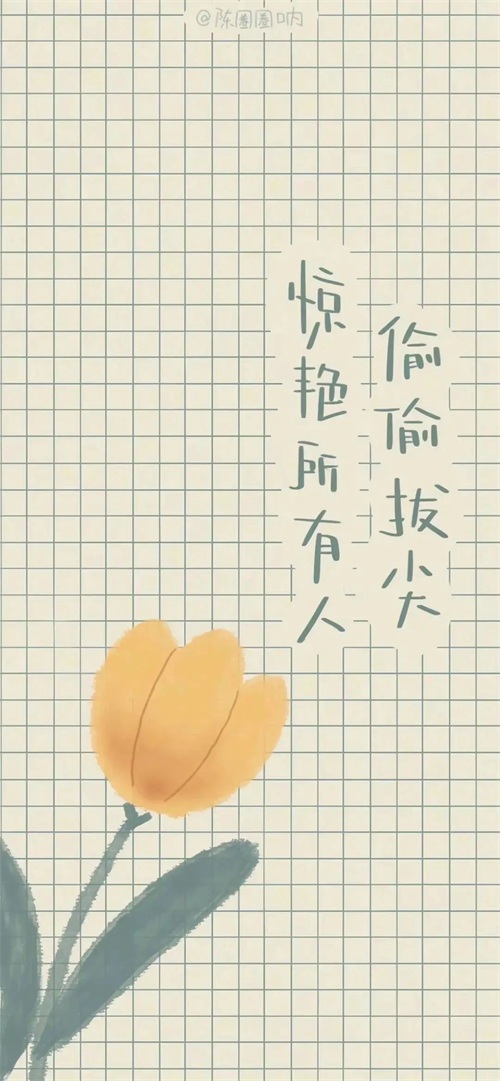 @陈圈圈呐
偷偷拔尖
惊艳所有人